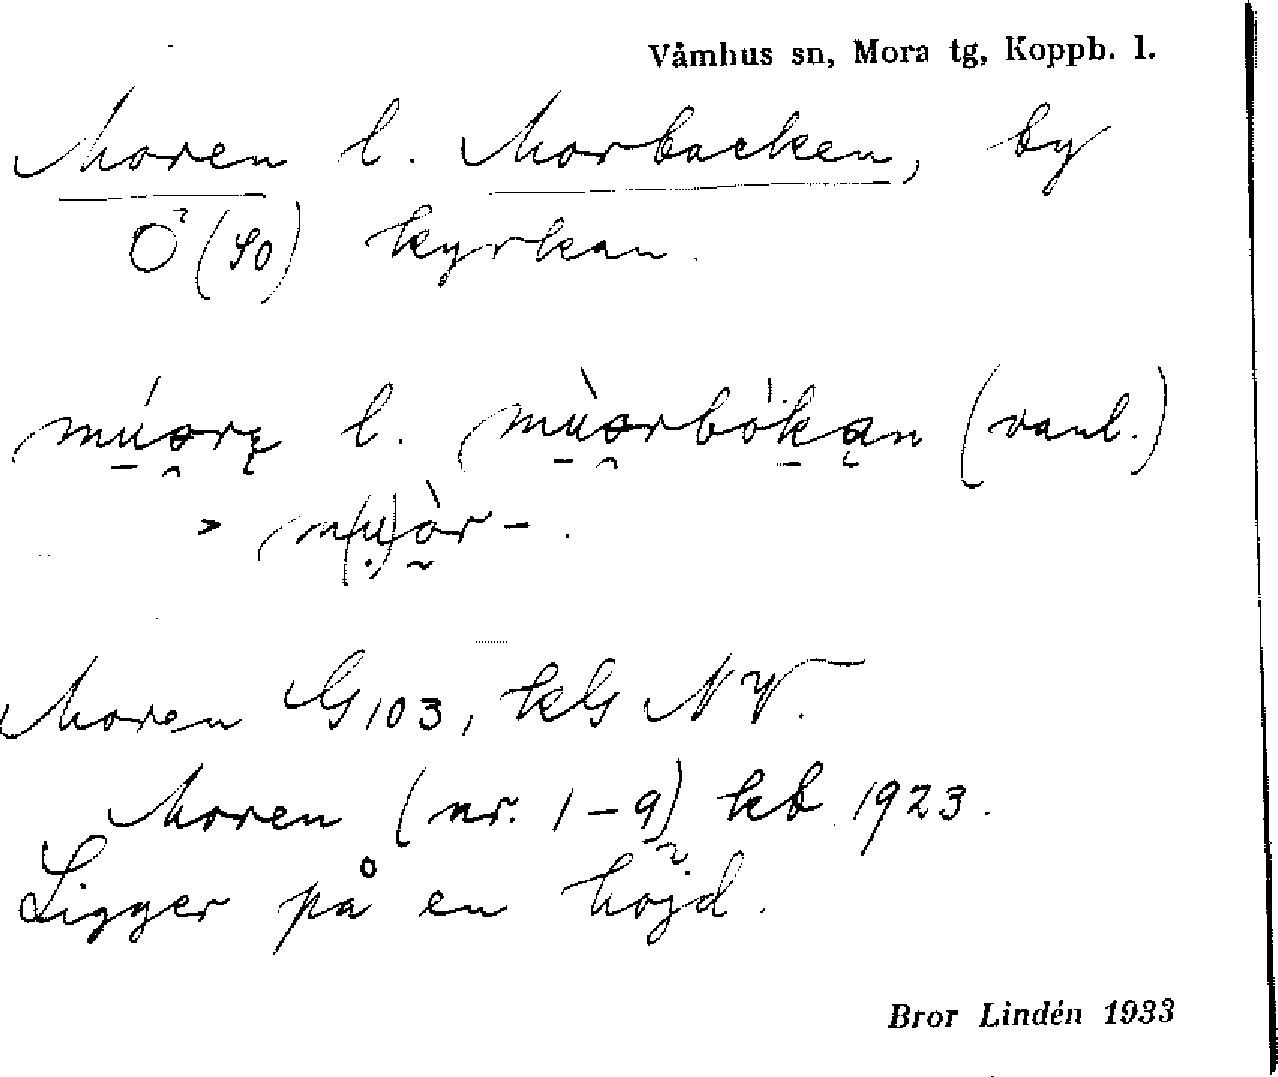 Våmhus sn, Mora tg, Koppb. l.
Moren l. Morbacken, by
Ö (SO) kyrkan.
l. (vanl.)
Moren G103, kG NV.
Moren (nr. 1-9) kb 1923.
Ligger på en höjd.
Bror Lindén 1933